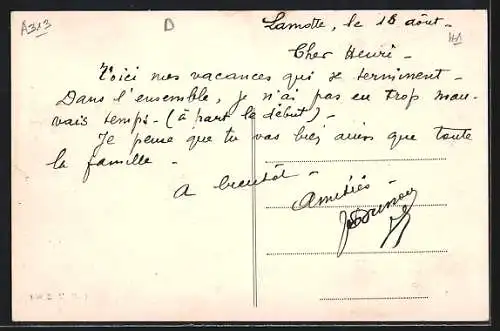 A313
D
Lamotte, le 18 août -
H1
Cher Henri -
Voici mes vacances qui se terminent -
Dans l'ensemble, je n'ai pas eu trop mau-
vais temps - (à part le début) -
Je pense que tu vas bien ainsi que toute
la famille -
A bientôt -
Amitiés -